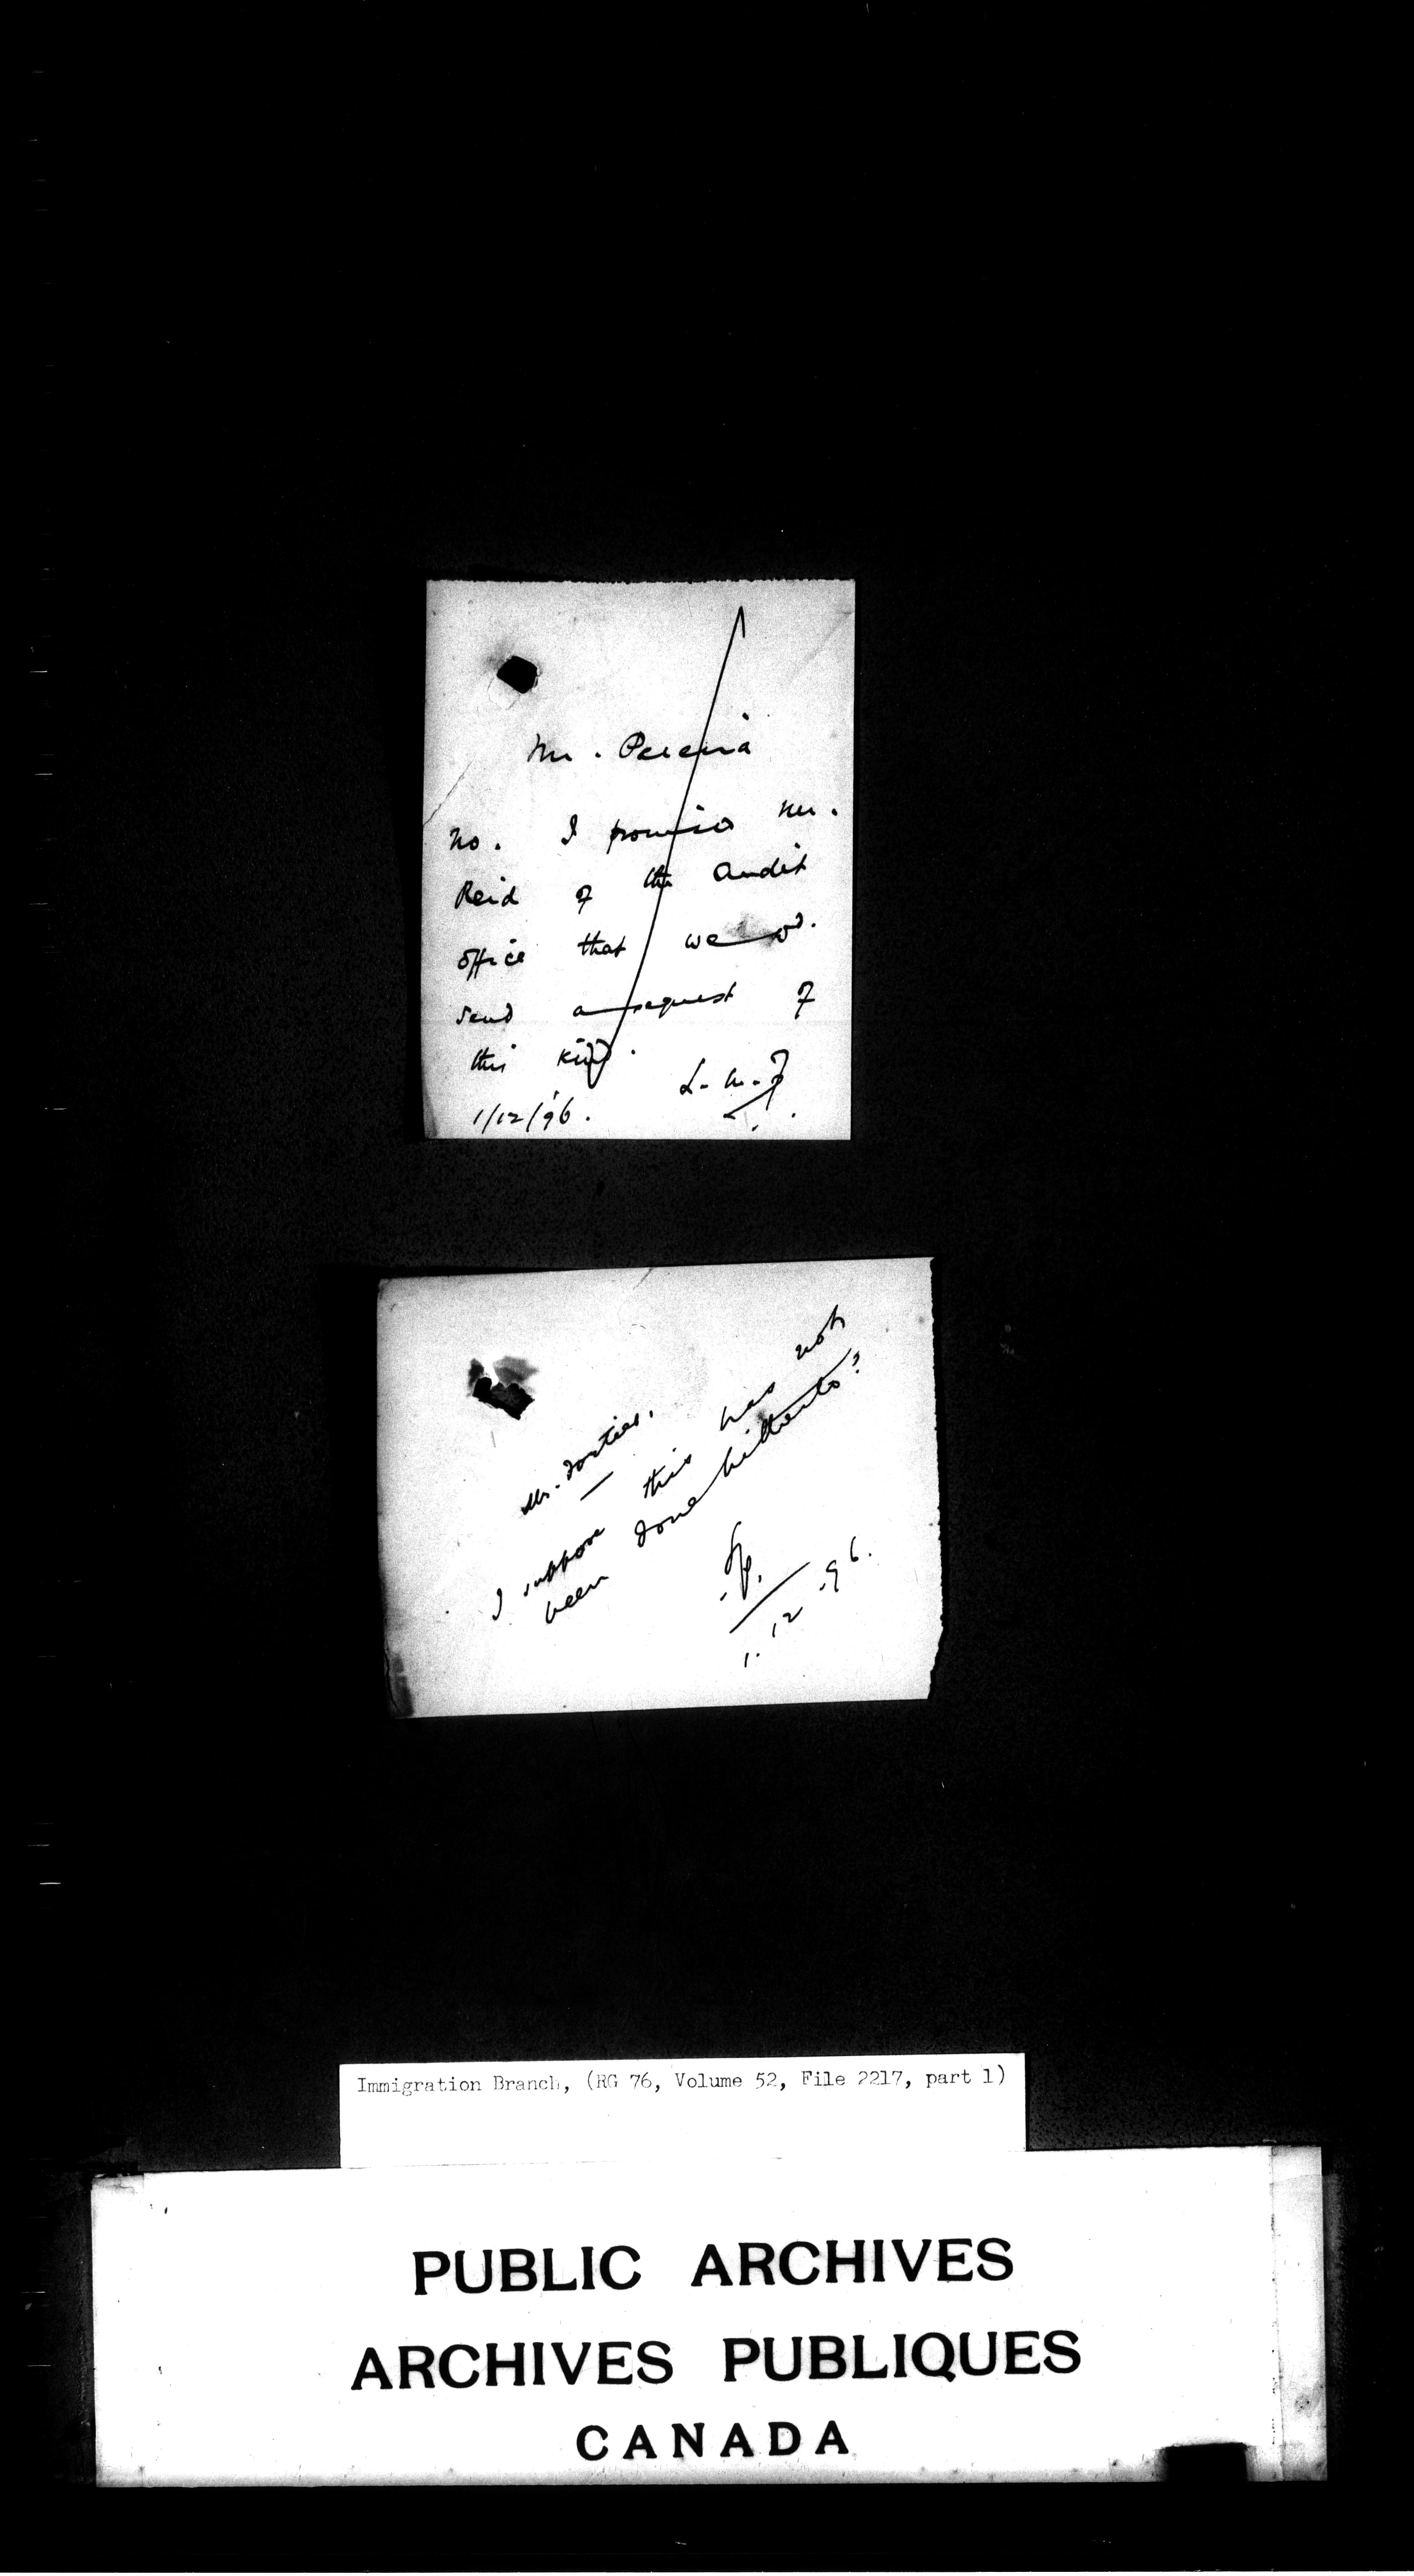 Mr. Pereira
No. I promised Mr.
Reid of the Audit
office that we wd.
send a request of
this kind.
L. M. F.
1/12/96.
Mr. Fortier.
I suppose this has not
been done hitherto?
1.12.96.
Immigration Branch, (RG 76, Volume 52, File 2217, part 1)
PUBLIC ARCHIVES
ARCHIVES PUBLIQUES
CANADA